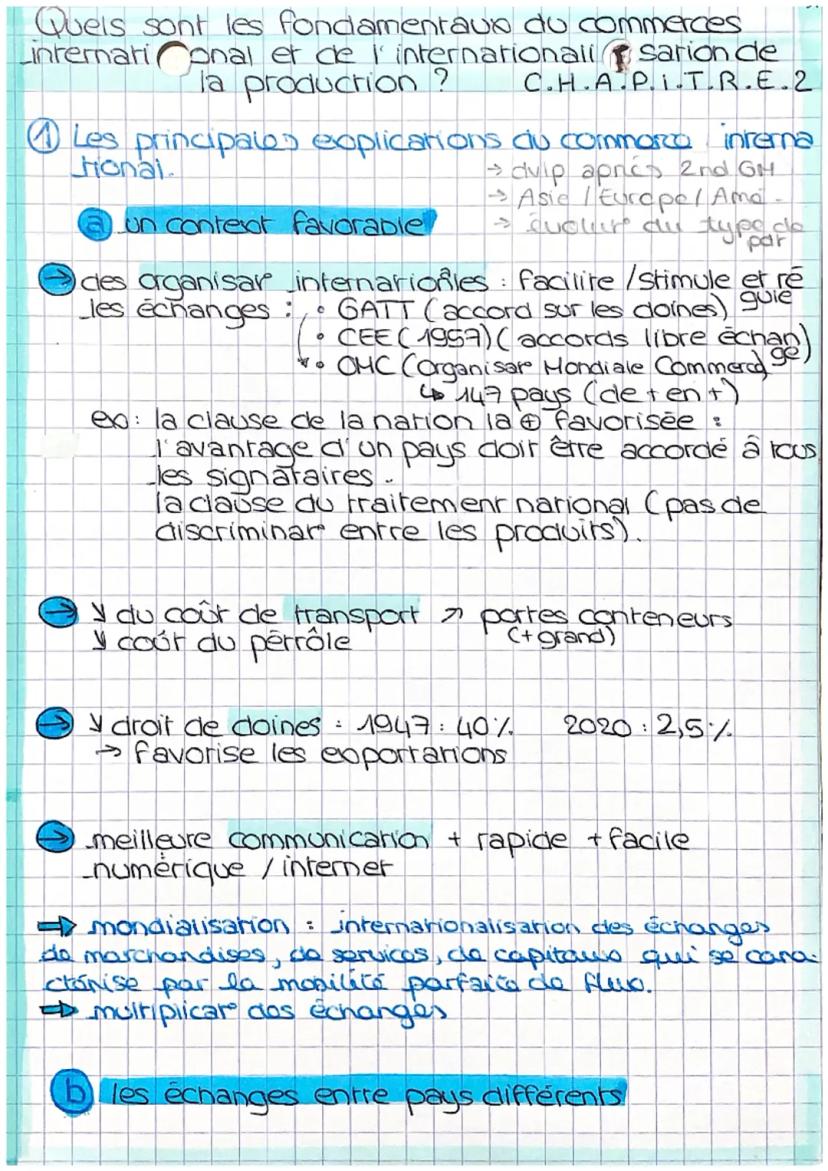 Quels sont les fondamentaux du commerces
internati onal et de l'internationali sation de
la production ? C.H.A.P.i.T.R.E.2
① Les principales explications du commerce interna
tional.
→ dvlp après 2nd GM
→ Asie / Europe / Amé.
→ évolut° du type de
par
ⓐ un context favorable
→ des organisat° internationales : facilite / stimule et ré
gule
les échanges : • GATT (accord sur les doines)
• CEE (1957) (accords libre échan
ge)
• OMC (organisat° Mondiale Commerce)
↳ 147 pays (de + en +)
ex : la clause de la nation la ⊕ favorisée :
l'avantage d'un pays doit être accordé â tous
les signataires.
la clause du traitement national (pas de
discriminat° entre les produits).
→ ↘ du coût de transport ↗ portes conteneurs
(+ grand)
↘ coût du pétrôle
→ ↘ droit de doines : 1947 : 40% 2020 : 2,5%
→ favorise les exportations
→ meilleure communication + rapide + facile
numérique / internet
⇒ mondialisation : internationalisation des échanges
de marchandises, de services, de capitaux qui se cara-
ctérise par la mobilité parfaite de flux.
⇒ multiplicat° des échanges
ⓑ les échanges entre pays différents